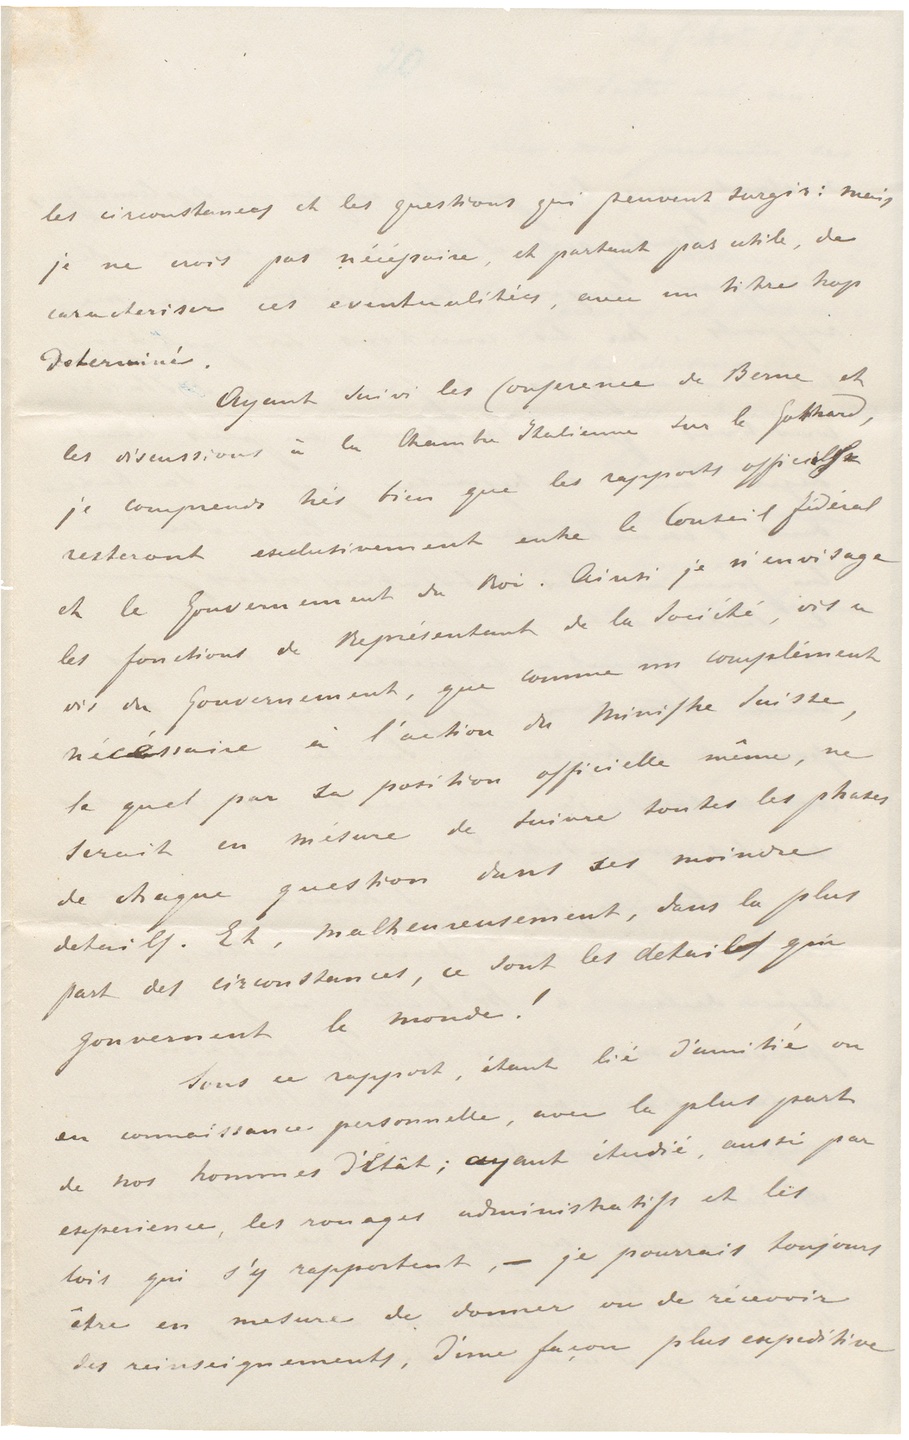 les circonstances et les questions qui peuvent surgir: mais
je ne crois pas nécéssaire, et partant pas utile, de
caracteriser ces eventualitées, avec un titre trop
determiné.
Ayant suivi les Conference de Berne et
les discussions à la Chambre Italienne sur le Gotthard,
je comprends très bien que les rapports officiels
resteront exclusivement entre le Conseil fédéral
et le Gouvernement du Roi. Ainsi je n'envisage
les fonctions de Représentant de la Société, vis a
vis du Gouvernement, que comme un complément
nécéssaire à l'action du Ministre Suisse,
le quel par sa position officielle même, ne
serait en mésure de suivre toutes les phases
de chaque question dans ses moindre
details. Et, malheureusement, dans la plus
part des circonstances, ce sont les details qui
gouvernent le monde!
Sous ce rapport, étant lié d'amitié ou
en connaissance personnelle, avec la plus part
de nos hommes d'Etât; ayant étudié, aussi par
experience, les rouages administratifs et les
lois qui s'y rapportent, — je pourrais toujours
être en mesure de donner ou de récevoir
des reinseignements, d'une façon plus expeditive